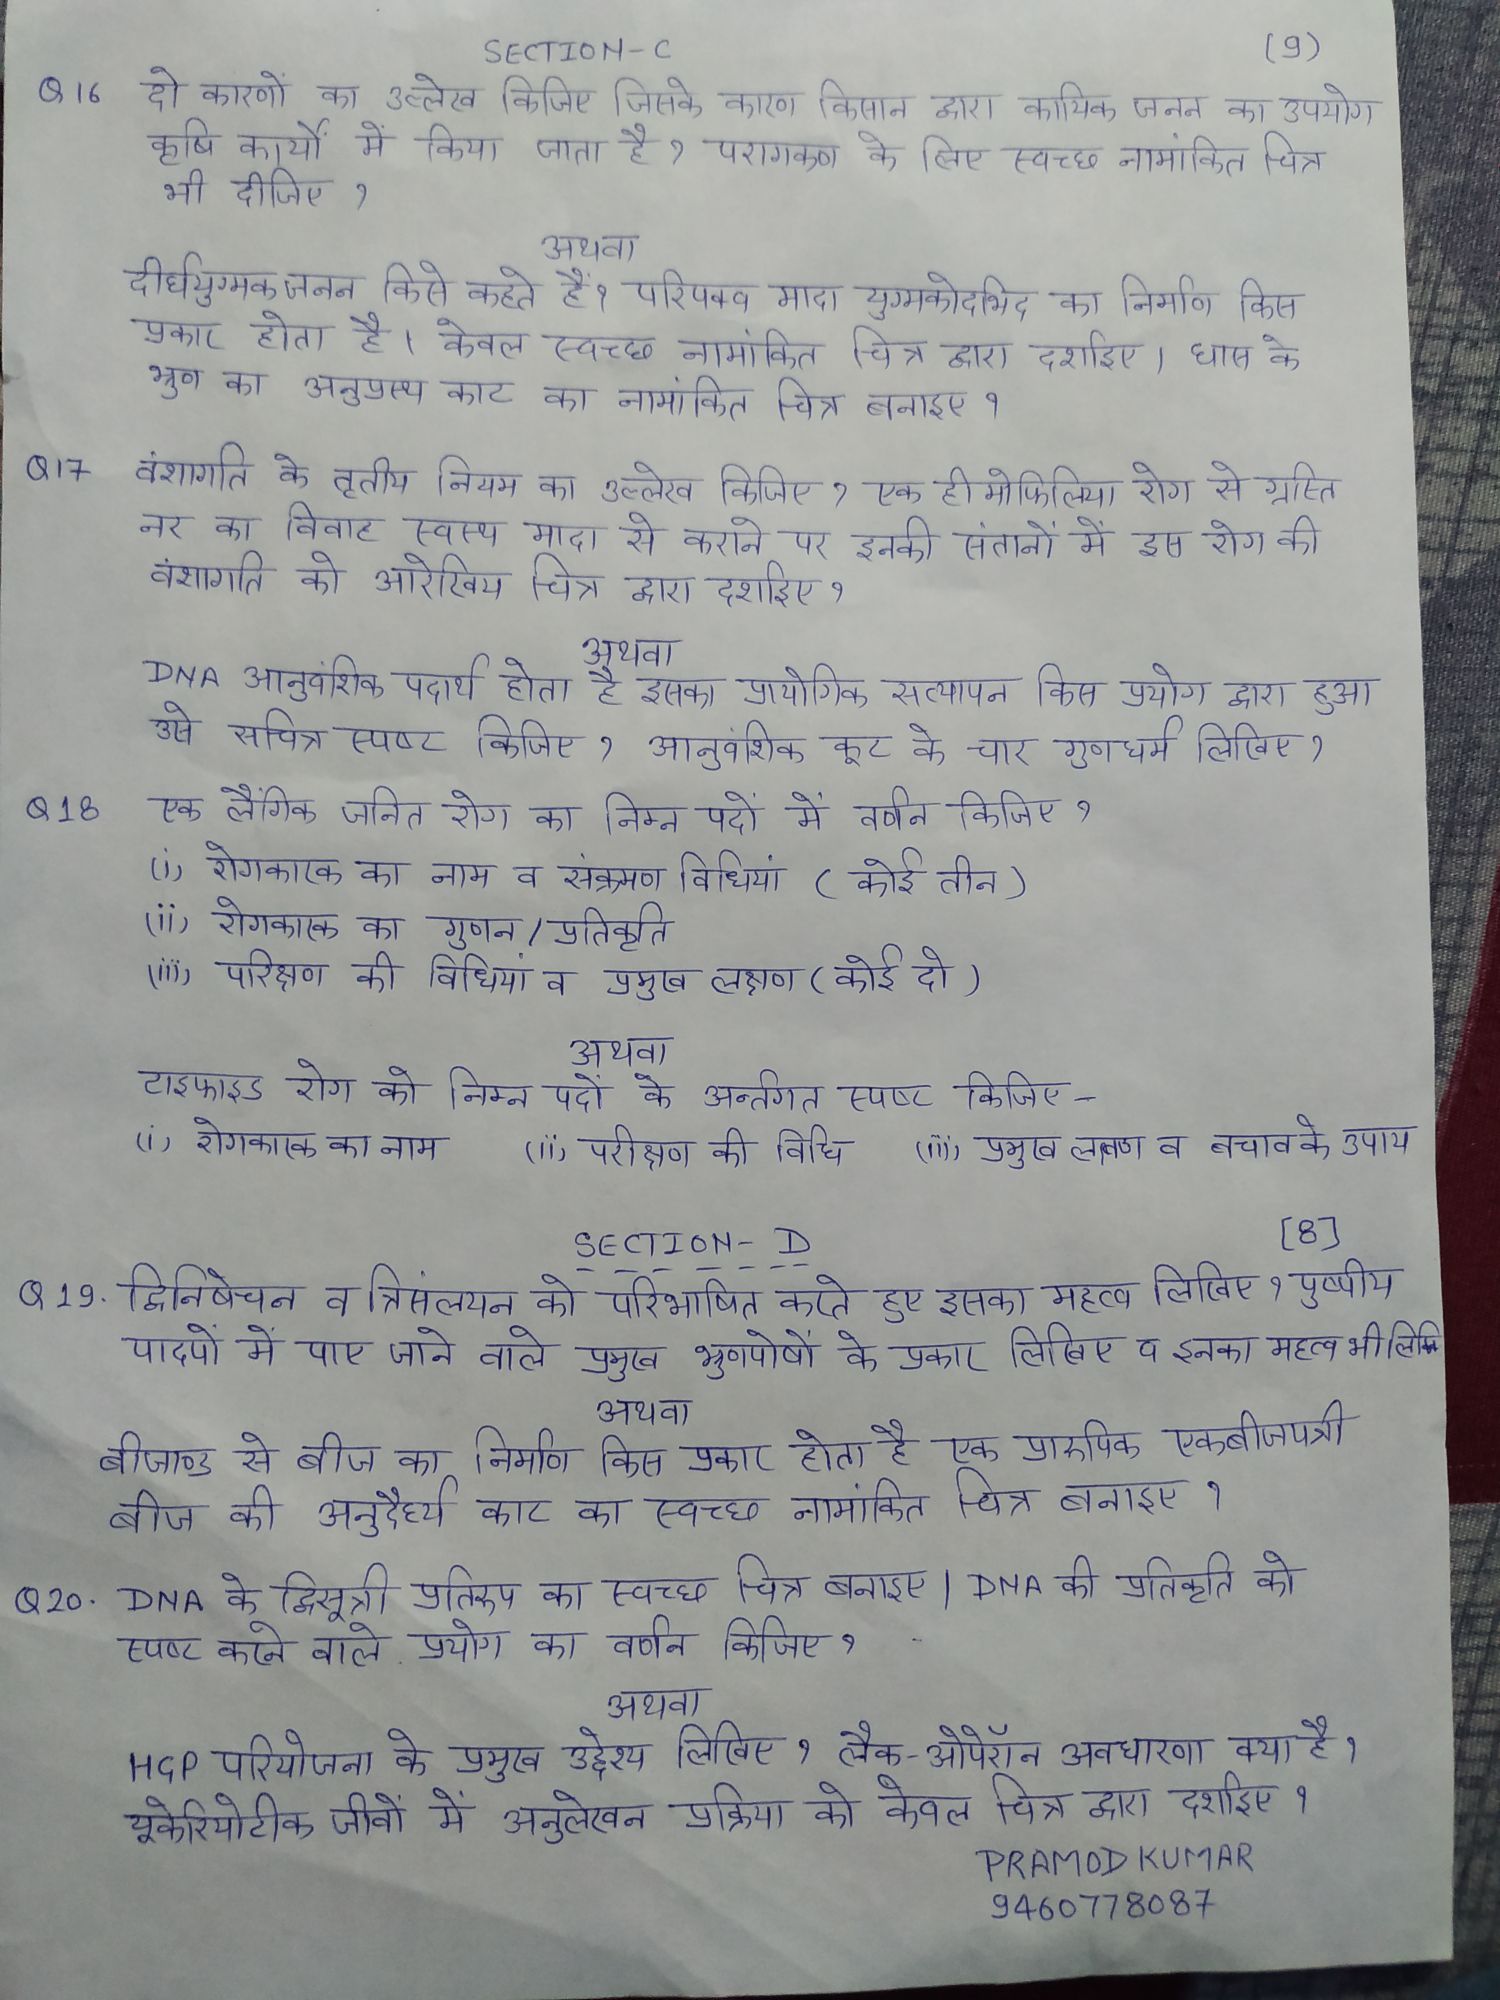 SECTION-C (9)
Q16 दो कारणों का उल्लेख किजिए जिसके कारण किसान द्वारा कायिक जनन का उपयोग
कृषि कार्यों में किया जाता है? परागकण के लिए स्वच्छ नामांकित चित्र
भी दीजिए ?
अथवा
दीर्घयुग्मकजनन किसे कहते हैं? परिपक्व मादा युग्मकोदभिद का निर्माण किस
प्रकार होता है। केवल स्वच्छ नामांकित चित्र द्वारा दर्शाइए। घास के
भ्रुण का अनुप्रस्थ काट का नामांकित चित्र बनाइए ?
Q17 वंशागति के तृतीय नियम का उल्लेख किजिए ? एक हीमोफिलिया रोग से ग्रस्ति
नर का विवाह स्वस्थ मादा से कराने पर इनकी संतानों में इस रोग की
वंशागति को आरेखिय चित्र द्वारा दर्शाइए ?
अथवा
DNA आनुवंशिक पदार्थ होता है इसका प्रायोगिक सत्यापन किस प्रयोग द्वारा हुआ
उसे सचित्र स्पष्ट किजिए ? आनुवंशिक कूट के चार गुणधर्म लिखिए ?
Q18 एक लैंगिक जनित रोग का निम्न पदों में वर्णन किजिए ?
(i) रोगकारक का नाम व संक्रमण विधियां (कोई तीन)
(ii) रोगकारक का गुणन/प्रतिकृति
(iii) परिक्षण की विधियां व प्रमुख लक्षण (कोई दो)
अथवा
टाइफाइड रोग को निम्न पदों के अर्न्तगत स्पष्ट किजिए -
(i) रोगकारक का नाम (ii) परीक्षण की विधि (iii) प्रमुख लक्षण व बचाव के उपाय
SECTION - D [8]
Q19. द्विनिषेचन व त्रिसंलयन को परिभाषित करते हुए इसका महत्व लिखिए ? पुष्पीय
पादपों में पाए जाने वाले प्रमुख भ्रुणपोषों के प्रकार लिखिए व इनका महत्व भी
अथवा
बीजाण्ड से बीज का निर्माण किस प्रकार होता है एक प्रारुपिक एकबीजपत्री
बीज की अनुदैर्ध्य काट का स्वच्छ नामांकित चित्र बनाइए ?
Q20. DNA के द्विसूत्री प्रतिरुप का स्वच्छ चित्र बनाइए। DNA की प्रतिकृति को
स्पष्ट करने वाले प्रयोग का वर्णन किजिए ?
अथवा
HGP परियोजना के प्रमुख उद्देश्य लिखिए ? लैक-ओपेरॉन अवधारणा क्या है ?
यूकेरियोटीक जीवों में अनुलेखन प्रक्रिया को केवल चित्र द्वारा दर्शाइए ?
PRAMOD KUMAR
9460778087